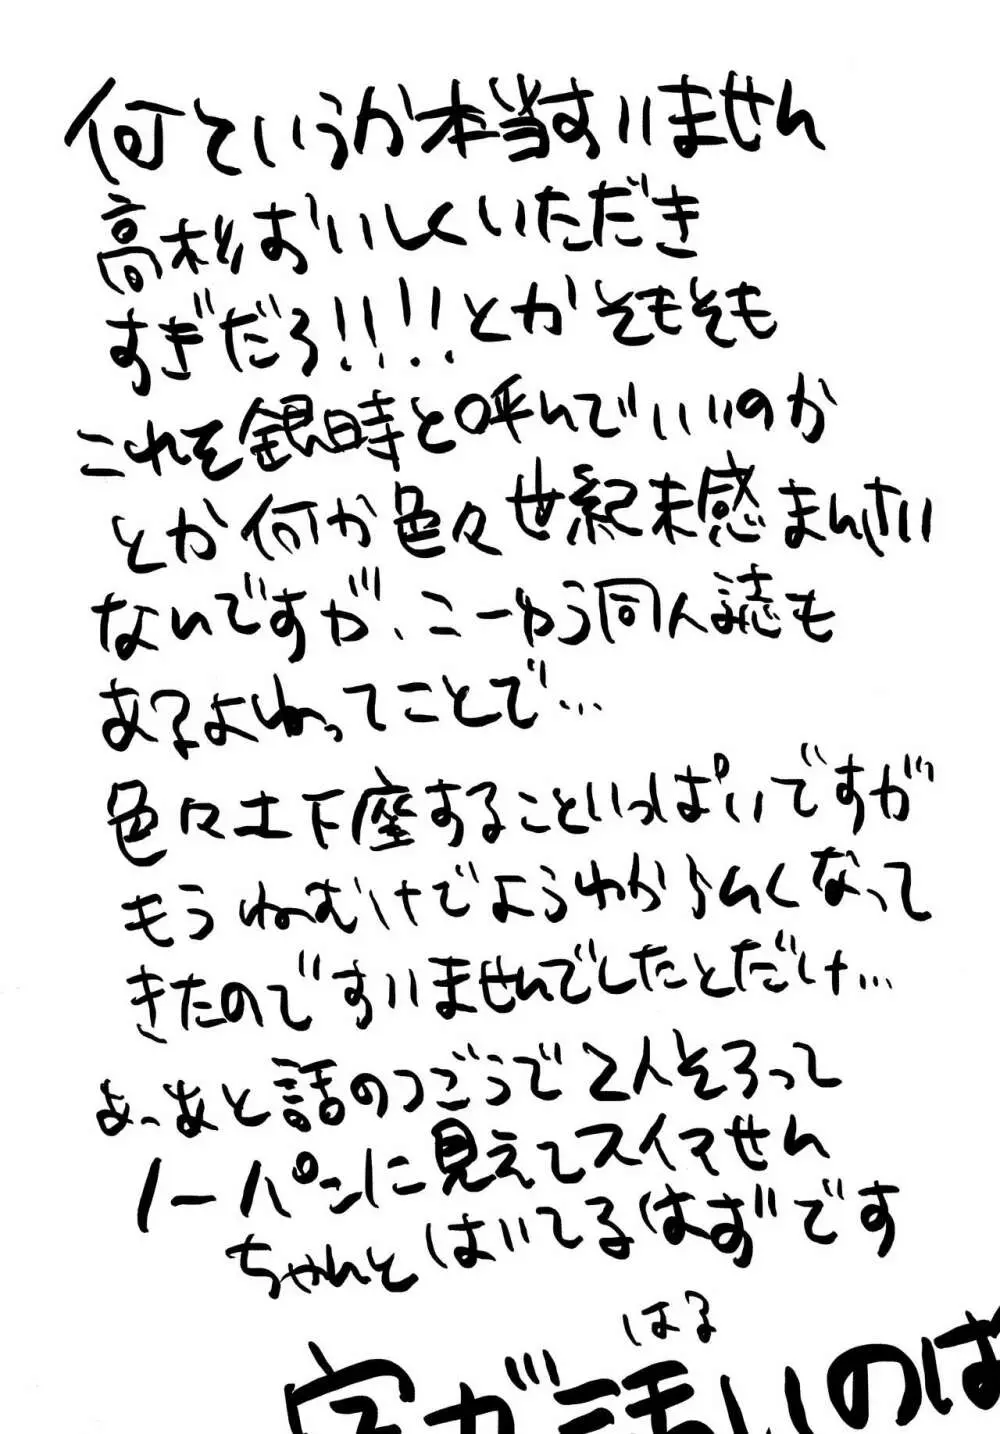 何ていうか本当すいません
高杉おいしくいただき
すぎだろ!!!!とかそもそも
これを銀時と呼んでいいのか
とか何か色々世紀末感まんさい
ないですが、こーゆう同人誌も
あるよねってことで…
色々土下座することいっぱいですが
もうねむけでようわからんくなって
きたのですいませんでしたとだけ…
あと話のつごうで2人そろって
ノーパンに見えてスイマせん
ちゃんとはいてるはずです
はる
字が
いのは